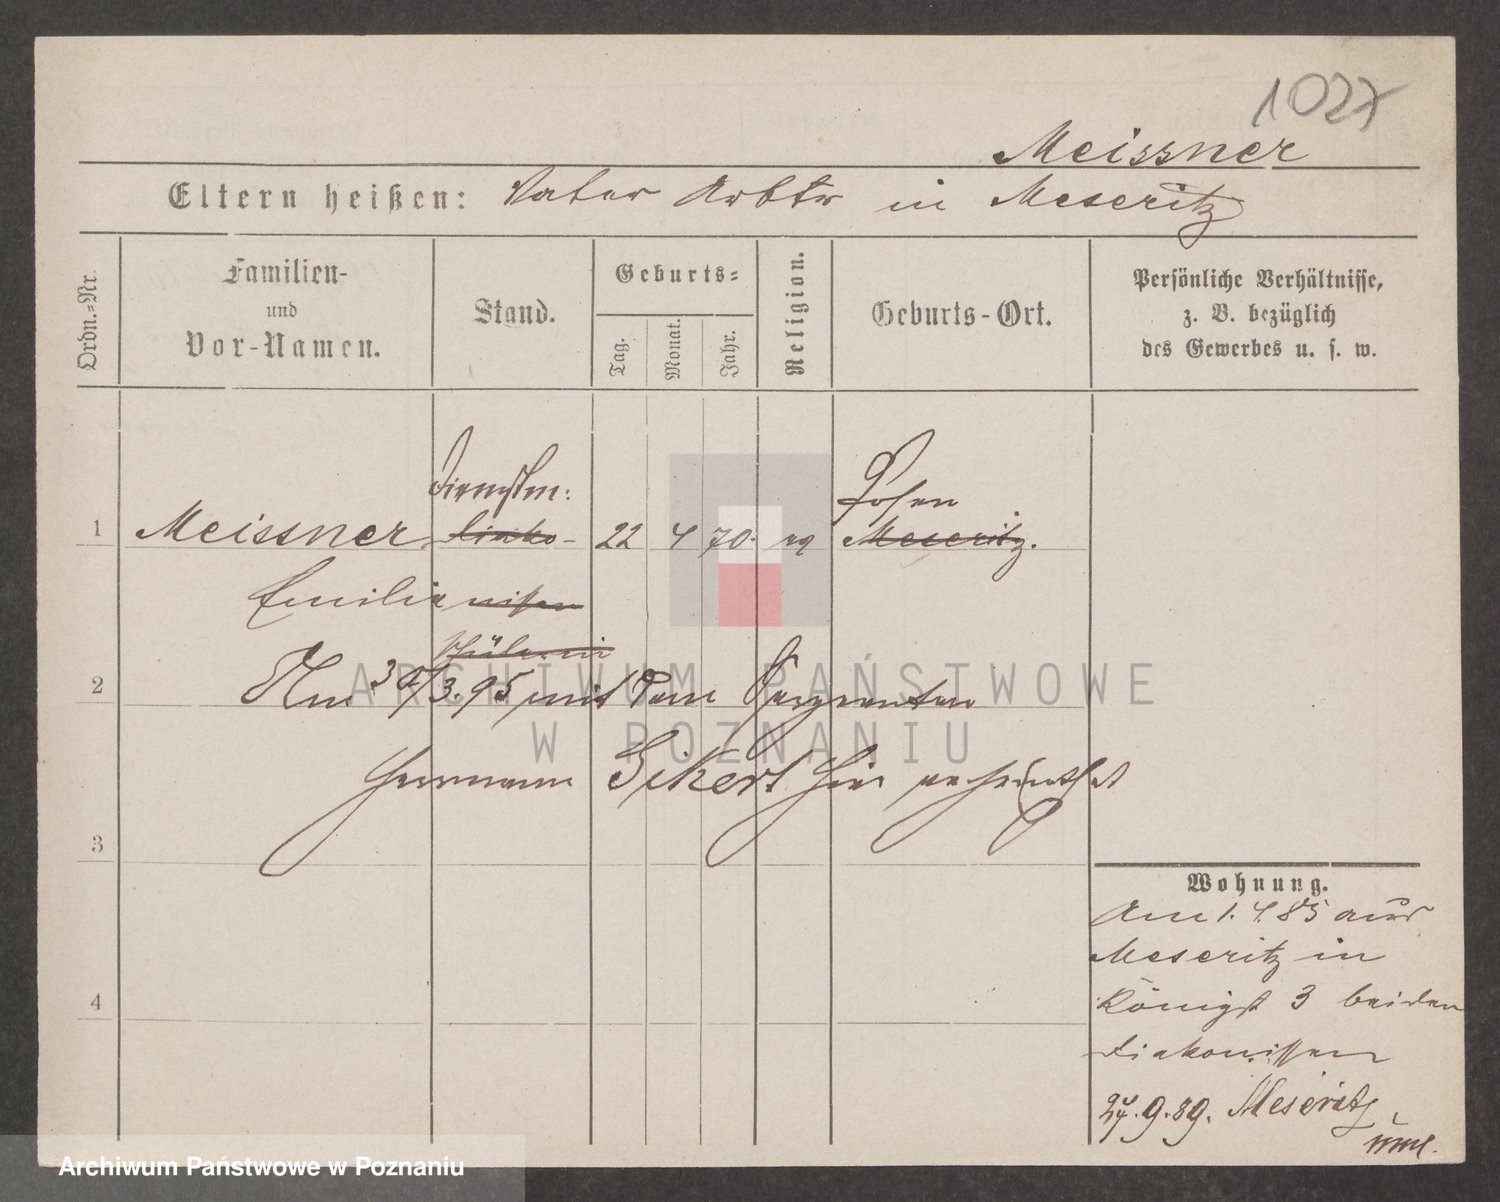 1027
Meissner
Eltern heißen: Vater Arbtr in Meseritz
Ordn.-Nr.
Familien-
und
Vor-Namen.
Stand.
Geburts-
Tag.
Monat.
Jahr.
Religion.
Geburts-Ort.
Persönliche Verhältnisse,
z. B. bezüglich
des Gewerbes u. s. w.
Dienstm: Posen
1 Meissner Diako- 22 4 70 ev Meseritz.
Emilie nissen
Schülerin
2 Am 30/3.95 mit dem Sergeanten
Hermann Eikert hier verheirathet
3
Wohnung.
Am 1.4.85 aus
Meseritz in
4 Königst 3 bei den
Diakonissen
27.9.89. Meseritz
ARCHIWUM PAŃSTWOWE
W POZNANIU
Archiwum Państwowe w Poznaniu